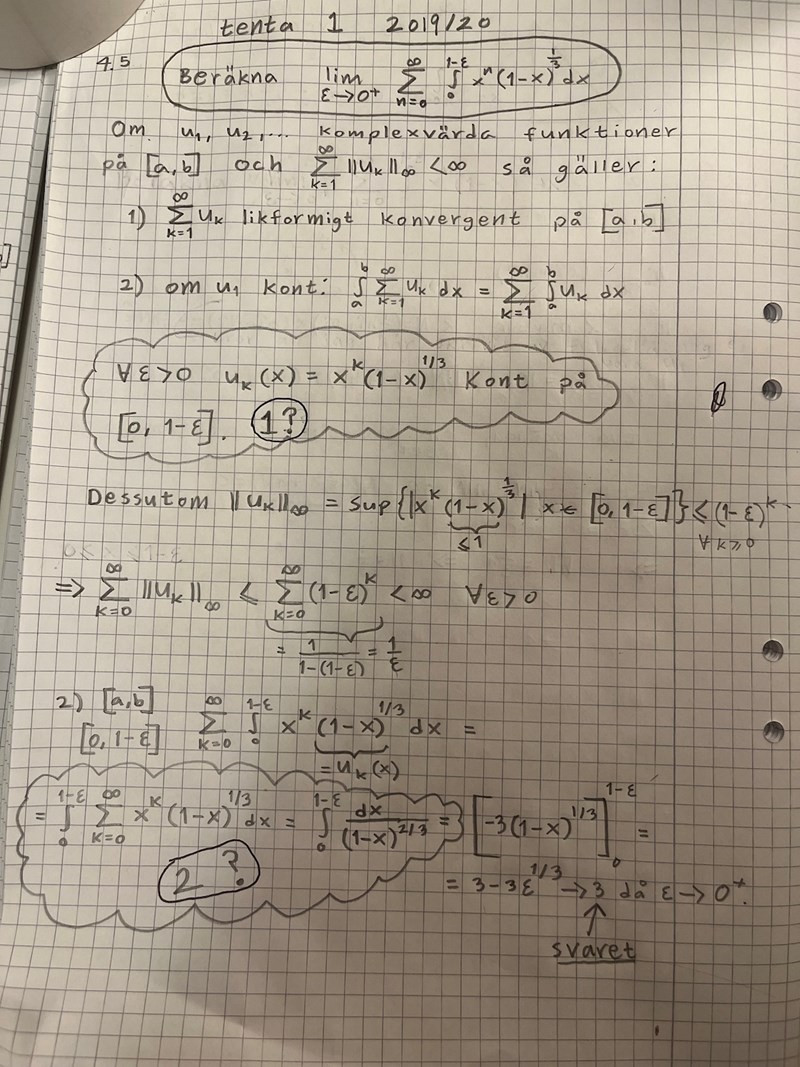 tenta 1 2019/20
4.5
Beräkna lim ε→0⁺ ∑ n=0 ∞ ∫₀^{1-ε} xⁿ(1-x)^{1/3} dx
Om u₁, u₂,... komplexvärda funktioner
på [a,b] och ∑ k=1 ∞ ||u_k||_∞ < ∞ så gäller:
1) ∑ k=1 ∞ u_k likformigt konvergent på [a,b]
2) om u₁ kont: ∫_a^b ∑ k=1 ∞ u_k dx = ∑ k=1 ∞ ∫_a^b u_k dx
∀ε>0 u_k(x) = x^k(1-x)^{1/3} kont på
[0, 1-ε]. 1?
Dessutom ||u_k||_∞ = sup{|x^k (1-x)^{1/3}| x∈ [0, 1-ε]} ≤ (1-ε)^k
≤1 ∀ k≥0
⇒ ∑ k=0 ∞ ||u_k||_∞ ≤ ∑ k=0 ∞ (1-ε)^k < ∞ ∀ε>0
= 1/(1-(1-ε)) = 1/ε
2) [a,b]
[0, 1-ε] ∑ k=0 ∞ ∫₀^{1-ε} x^k (1-x)^{1/3} dx =
= u_k(x)
= ∫₀^{1-ε} ∑ k=0 ∞ x^k (1-x)^{1/3} dx = ∫₀^{1-ε} dx/(1-x)^{2/3} = [-3(1-x)^{1/3}]₀^{1-ε} =
2 ?
= 3-3ε^{1/3} → 3 då ε→0⁺.
↑
svaret